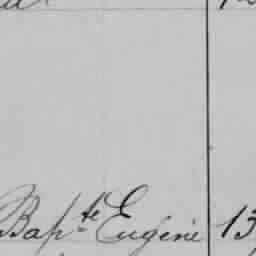 Bapte Eugène 13